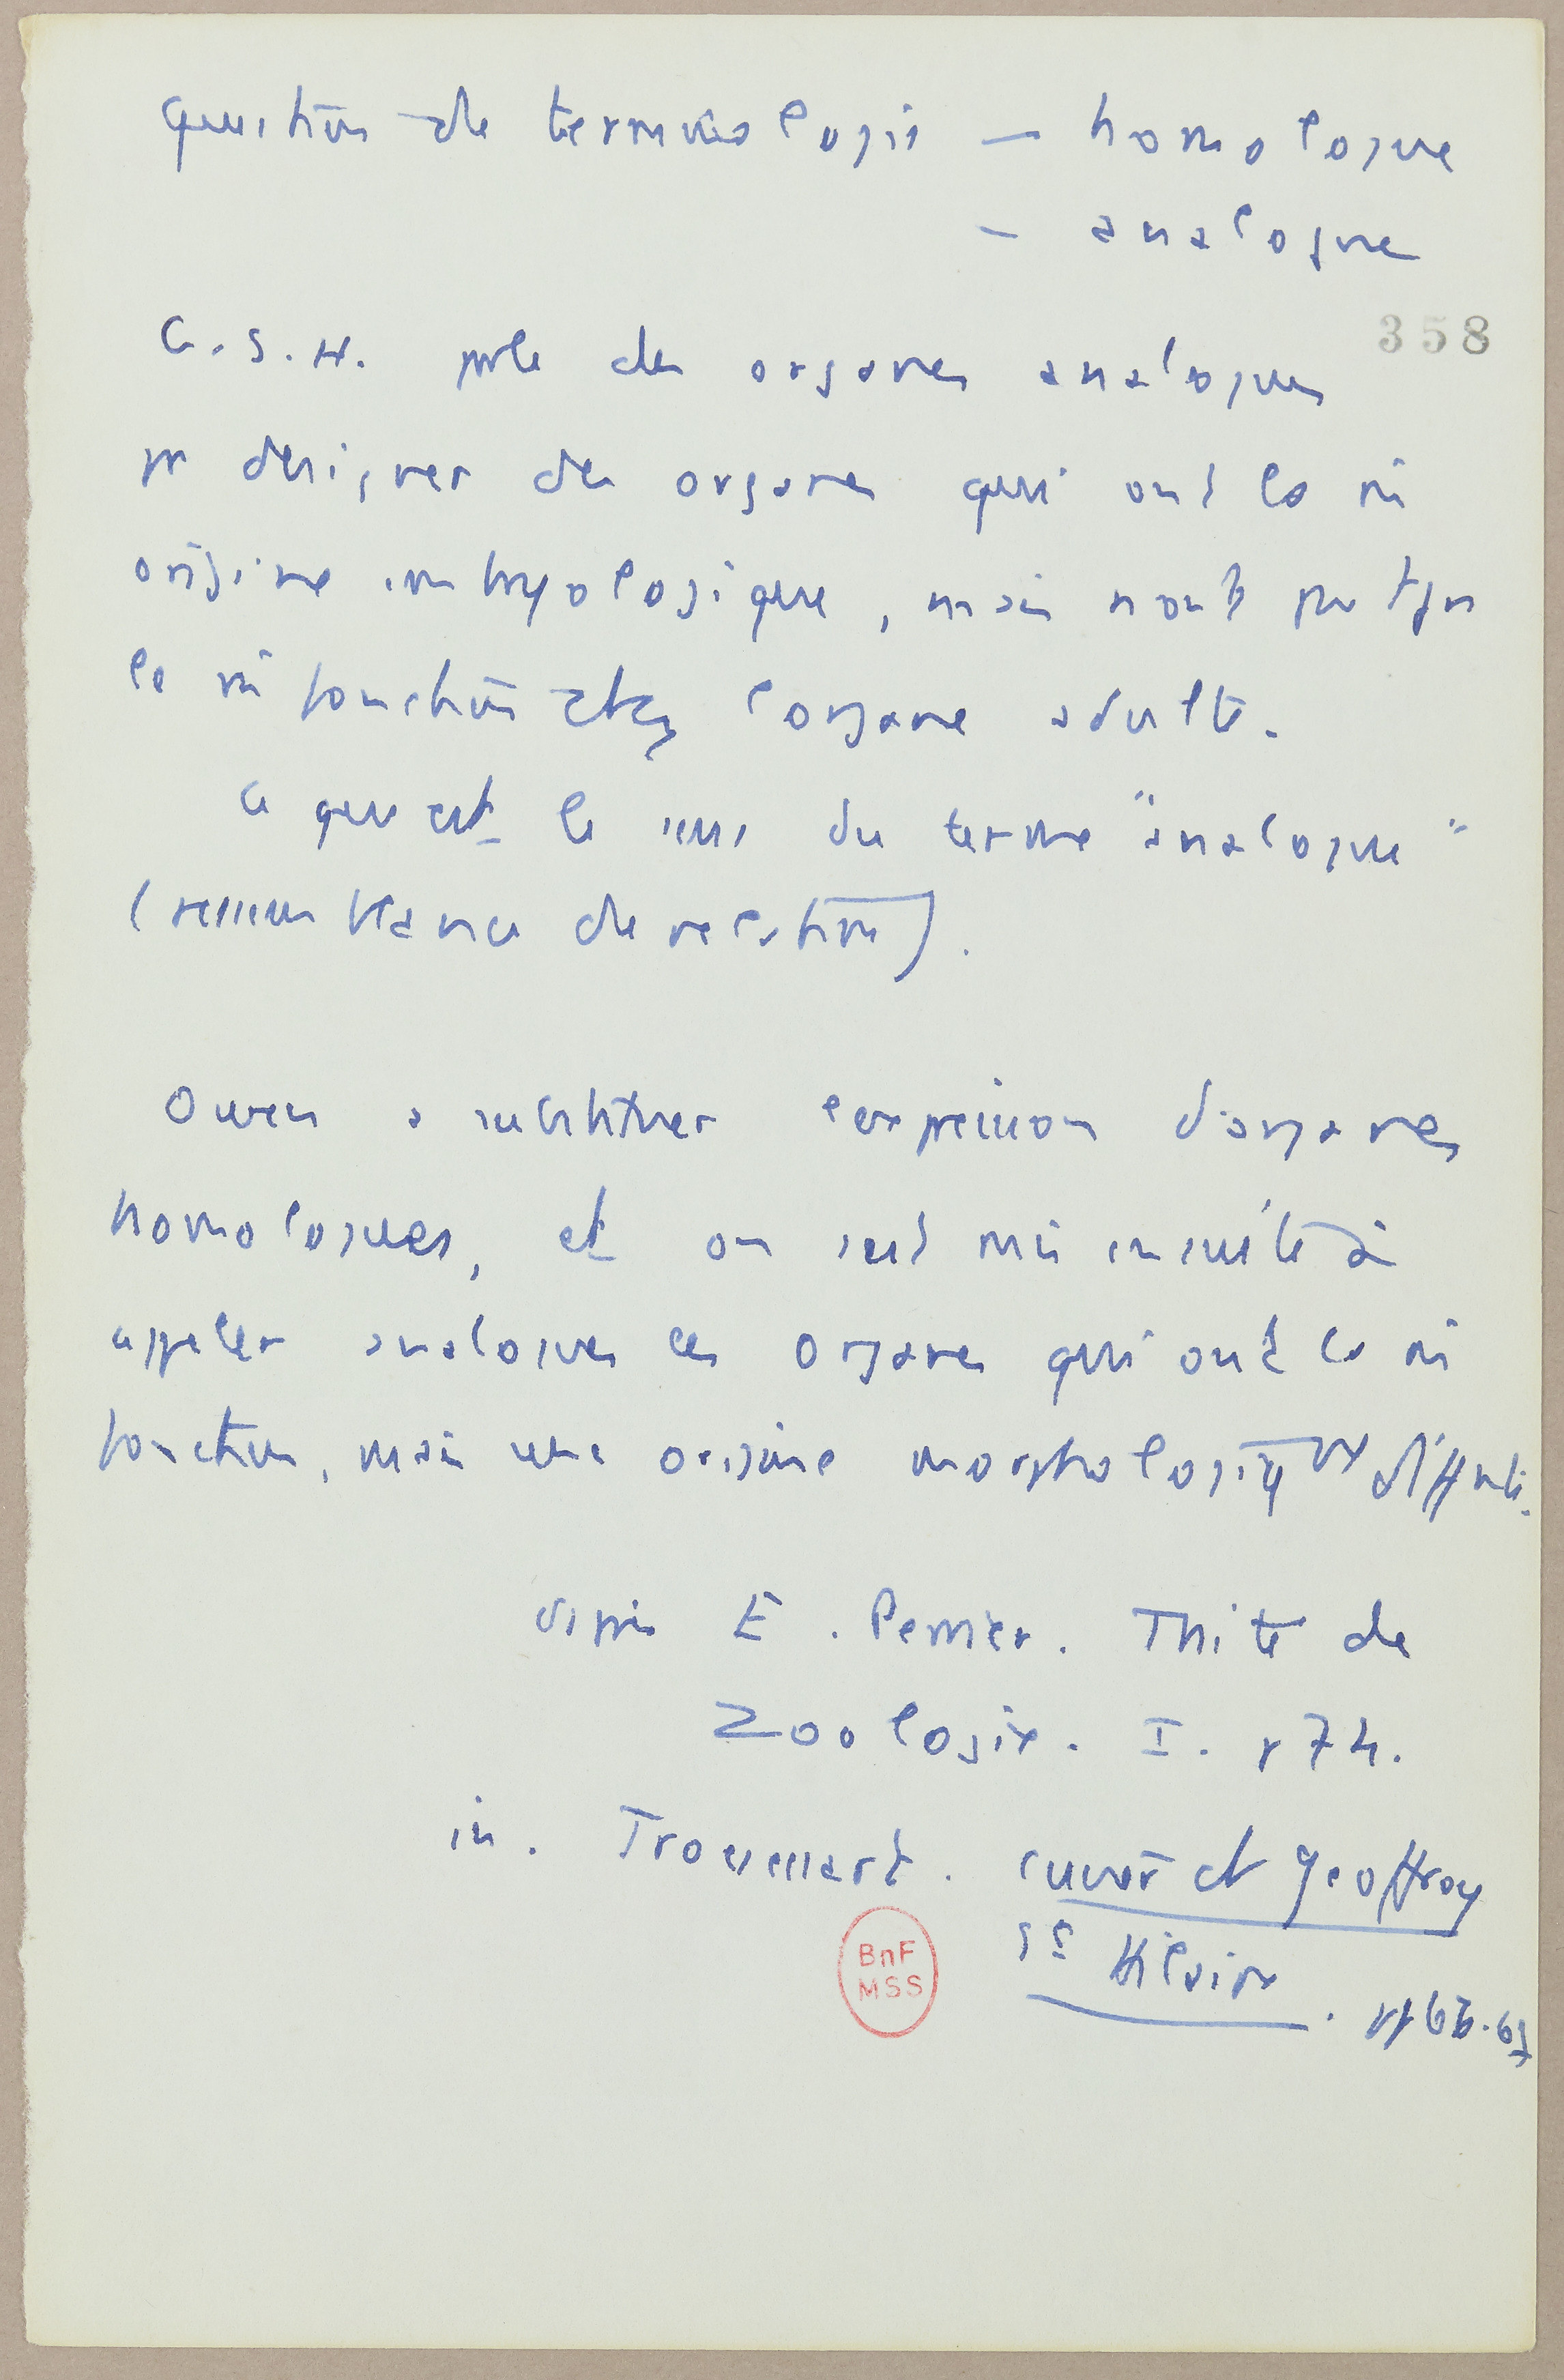 Question de terminologie — homologue
– analogue
358
G.S.H. parle des organes analogues
pr designer des organes qui ont la m̂
origine embryologique, mais n'ont pas tjrs
la m̂ fonction chez l'organe adulte.
Ce que est le sens du terme "analogue"
(ressemblance de relation).
Owen a substituer expression d'organes
homologues, et on s'est mis ensuite à
appeler analogues les organes qui ont la m̂
fonction, mais une origine morphologique différente.
d'après E. Perrier. Traité de
Zoologie. I. 174.
in. Trouessart. Cuvier et Geoffroy
St Hilaire.
BnF
MSS